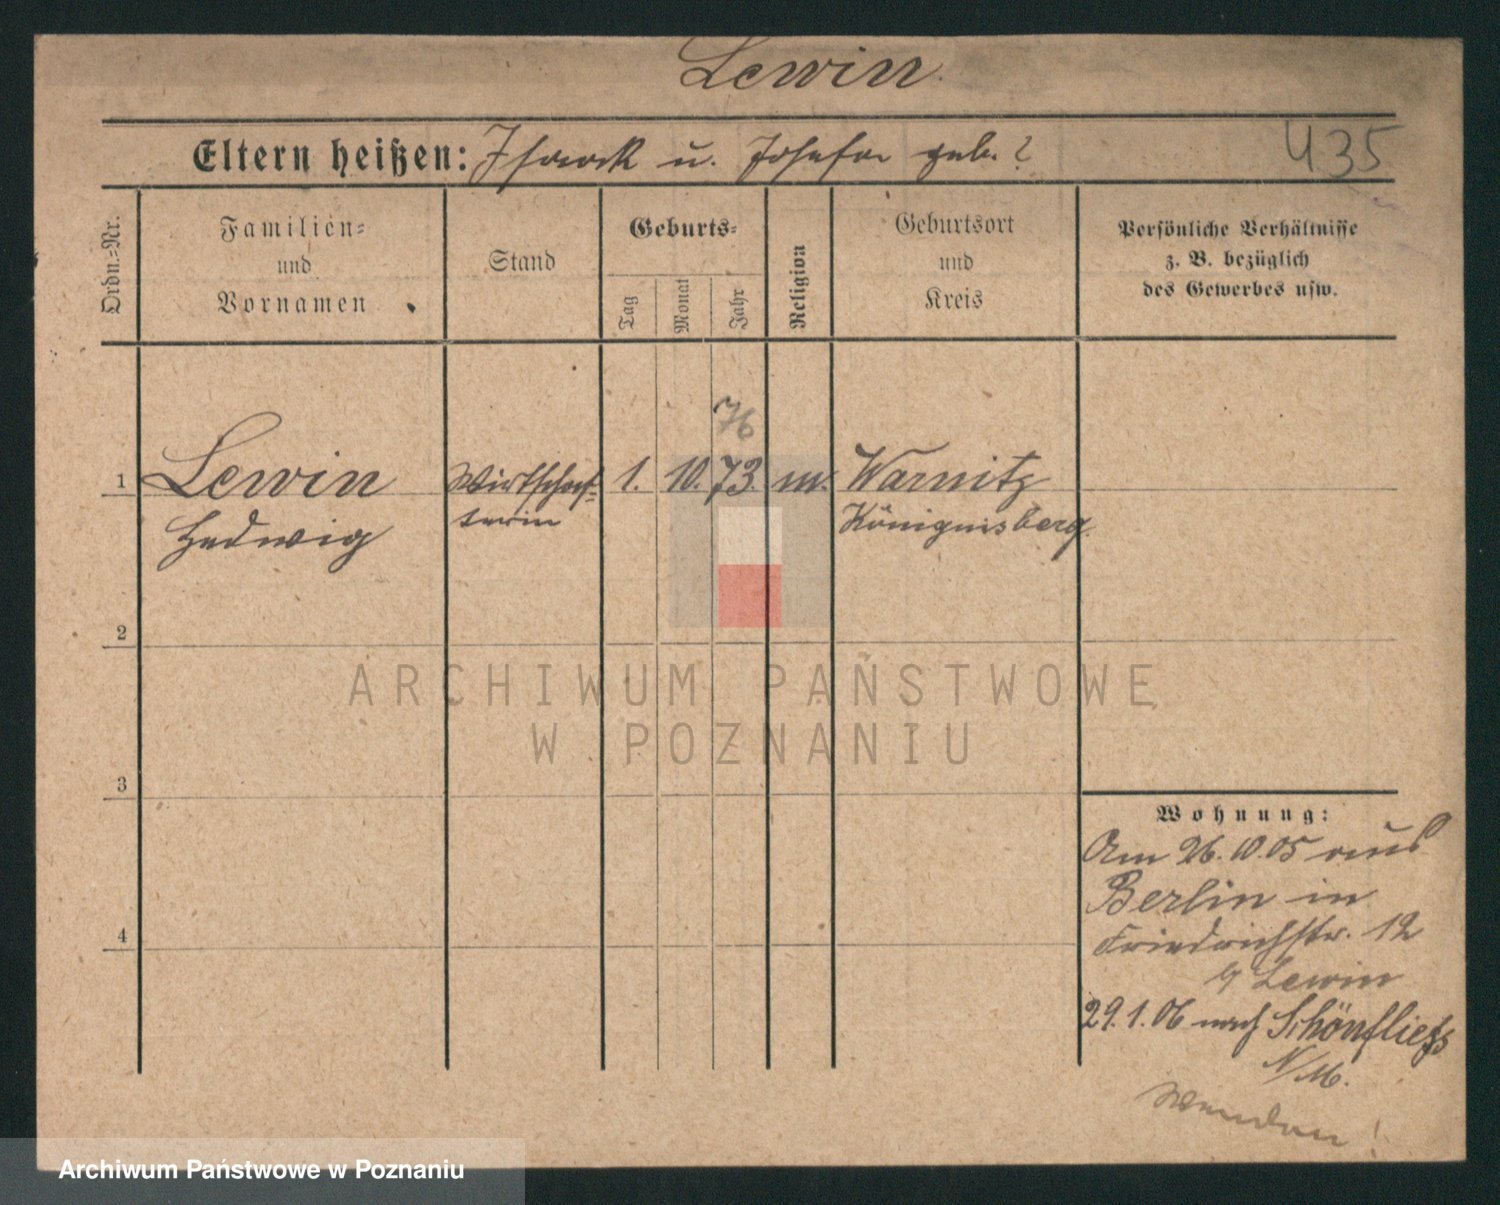 Lewin.
Eltern heißen: Isaack u. Josefa geb. ?
435
Ordn.-Nr.
Familien-
und
Vornamen
Stand
Geburts-
Tag
Monat
Jahr
Religion
Geburtsort
und
Kreis
Persönliche Verhältnisse
z. B. bezüglich
des Gewerbes usw.
76
1 Lewin Wirtschaf- 1. 10. 73. m. Warnitz
Hedwig terin Königsberg.
2
3
4
ARCHIWUM PAŃSTWOWE
W POZNANIU
Wohnung:
Am 26.10.05 aus
Berlin in
Friedrichstr. 12
b/ Lewin
29.1.06 nach Schönfliess
N/M.
Wenden!
Archiwum Państwowe w Poznaniu